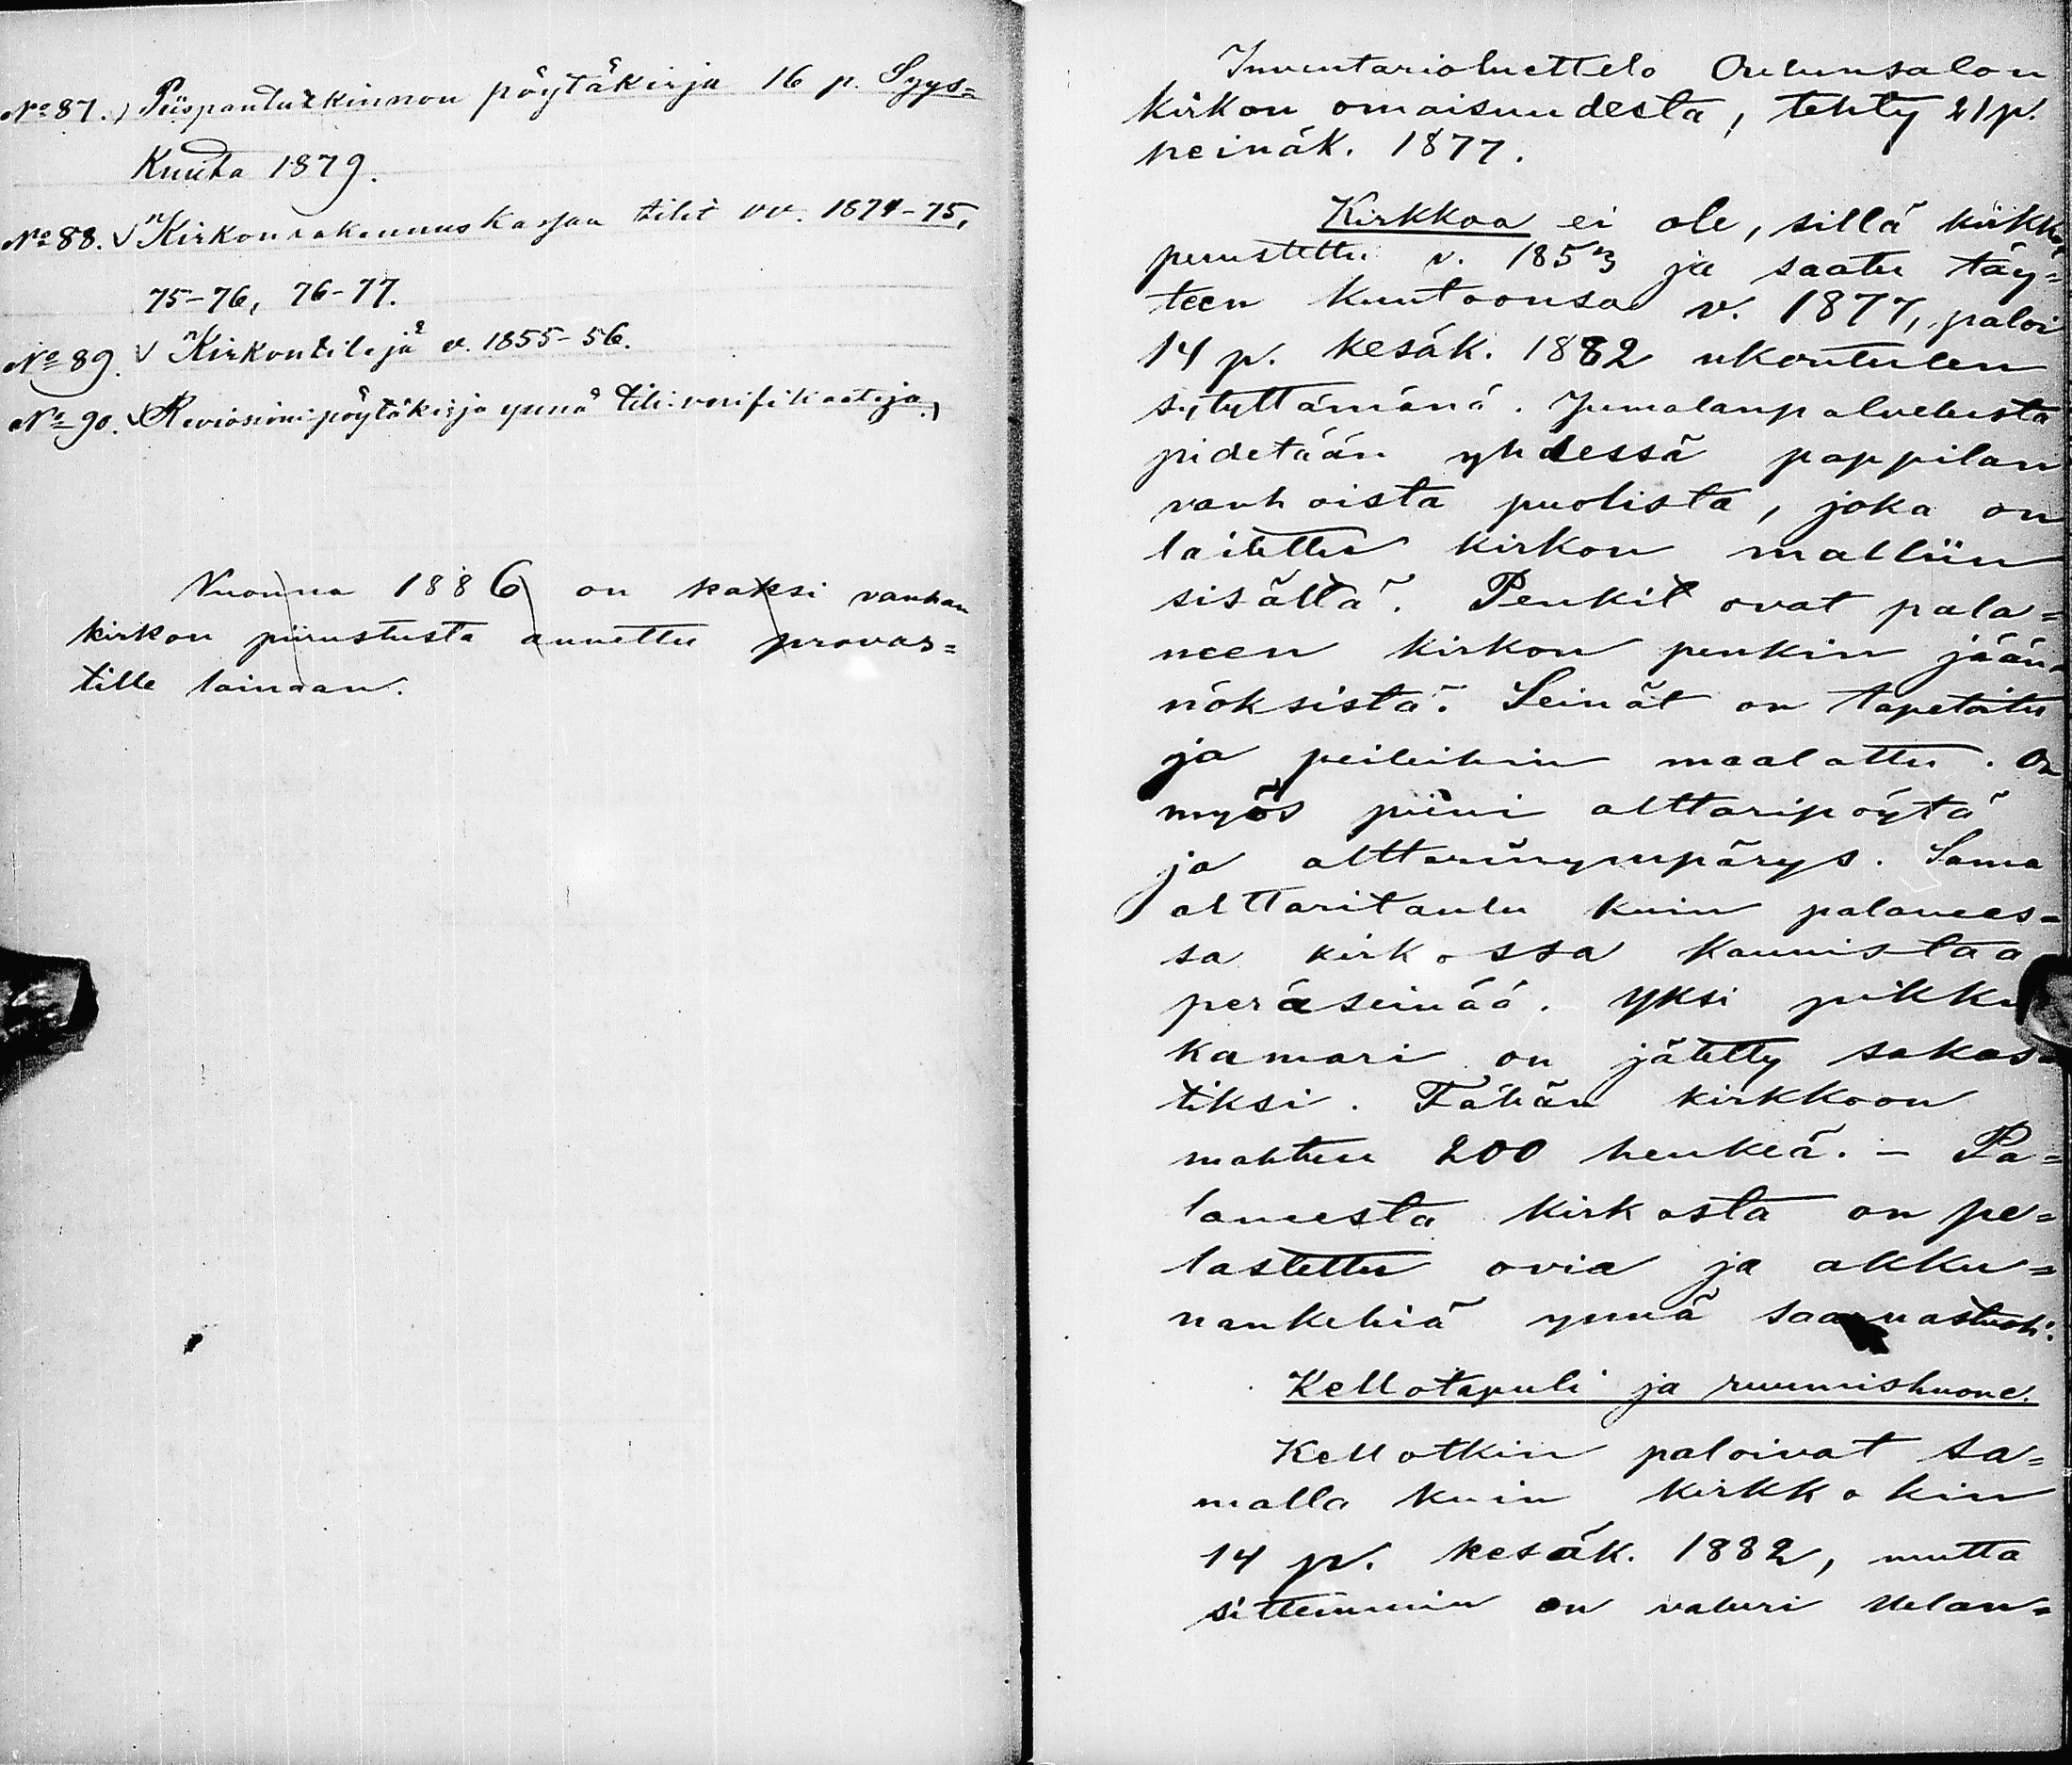 No 87. Piispantutkinnon pöytäkirja 16 p. Syys=
Kuuta 1879.
No 88. √ Kirkonrakennuskassan tilit vv. 1874-75,
75-76, 76-77.
No 89. √ Kirkontilejä v. 1855-56.
No 90. √ Revisionipöytäkirja ynnä tili-verifikaatija.
Vuonna 1886 on kaksi vanhan
kirkon piirustusta annettu provas=
tille lainaan.
Inventarioluettelo Oulunsalon
kirkon omaisuudesta, tehty 21 p.
heinäk. 1877.
Kirkkoa ei ole, sillä kirkko,
perustettu v. 1853 ja saatu täy=
teen kuntoonsa v. 1877, paloi
14 p. kesäk. 1882 ukontulen
sytyttämänä. Jumalanpalvelusta
pidetään yhdessä pappilan
vanhoista puolista, joka on
laitettu kirkon malliin
sisältä. Penkit ovat pala=
neen kirkon penkin jään=
nöksistä. Seinät on tapetoitu
ja peileihin maalattu. On
myös pieni alttaripöytä
ja alttarinympärys. Sama
alttaritaulu kuin palanees=
sa kirkossa kaunistaa
peräseinää. Yksi pikku
kamari on jätetty sakas=
tiksi. Tähän kirkkoon
mahtuu 200 henkeä. – Pa=
laneesta kirkosta on pe=
lastettu ovia ja akku=
nankehiä ynnä saarnastuoli.
Kellotapuli ja ruumishuone.
Kellotkin paloivat sa=
malla kuin kirkkokin
14 p. kesäk. 1882, mutta
sittemmin on valuri Ulan=